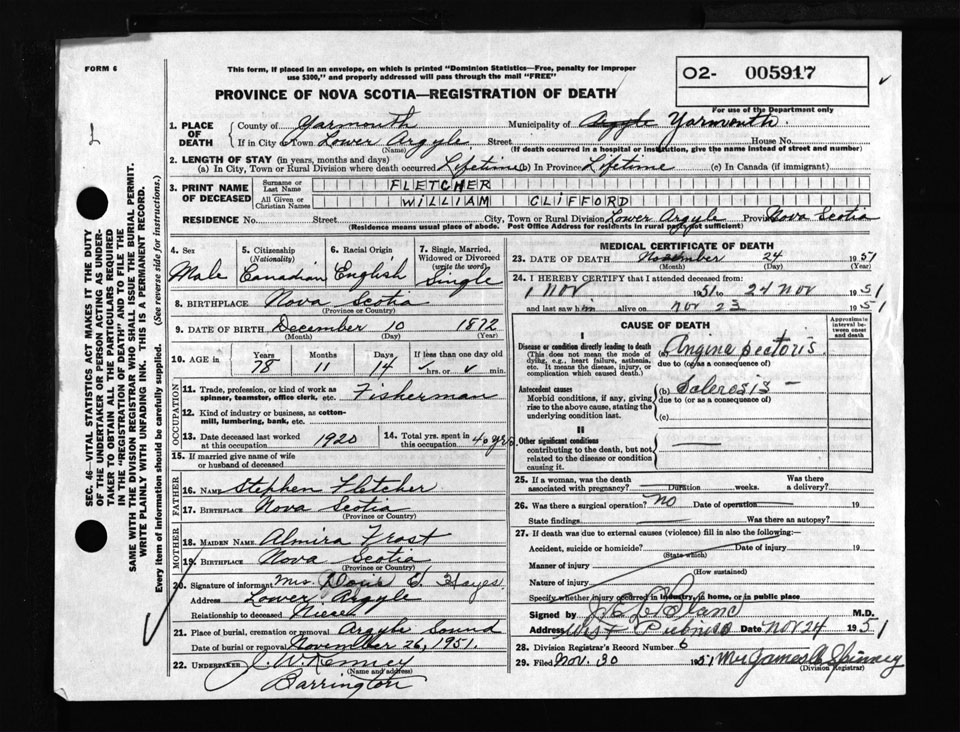 FORM 6
This form, if placed in an envelope, on which is printed "Dominion Statistics—Free, penalty for improper
use $300," and properly addressed will pass through the mail "FREE"
PROVINCE OF NOVA SCOTIA—REGISTRATION OF DEATH
02- 005917
For use of the Department only
1. PLACE OF DEATH County of Yarmouth Municipality of Argyle Yarmouth.
If in City or Town Lower Argyle Street House No.
(Name) (If death occurred in a hospital or institution, give the name instead of street and number)
2. LENGTH OF STAY (in years, months and days)
(a) In City, Town or Rural Division where death occurred Lifetime (b) In Province Lifetime (c) In Canada (if immigrant)
3. PRINT NAME OF DECEASED Surname or Last Name FLETCHER
All Given or Christian Names WILLIAM CLIFFORD
RESIDENCE No. Street City, Town or Rural Division Lower Argyle Province Nova Scotia
(Residence means usual place of abode. Post Office Address for residents in rural parts not sufficient)
4. Sex Male
5. Citizenship (Nationality) Canadian
6. Racial Origin English
7. Single, Married, Widowed or Divorced (write the word) Single
8. BIRTHPLACE Nova Scotia
9. DATE OF BIRTH December 10 1872
(Month) (Day) (Year)
10. AGE in Years Months Days If less than one day old
78 11 14 hrs. or min.
OCCUPATION
11. Trade, profession, or kind of work as
spinner, teamster, office clerk, etc. Fisherman
12. Kind of industry or business, as cotton-
mill, lumbering, bank, etc.
13. Date deceased last worked at this occupation 1920
14. Total yrs. spent in this occupation 40 yrs.
15. If married give name of wife
or husband of deceased
FATHER
16. NAME Stephen Fletcher
17. BIRTHPLACE Nova Scotia
(Province or Country)
MOTHER
18. MAIDEN NAME Almira Frost
19. BIRTHPLACE Nova Scotia
(Province or Country)
20. Signature of informant Mrs. Doris E. Hayes
Address Lower Argyle
Relationship to deceased Niece
21. Place of burial, cremation or removal Argyle Sound
Date of burial or removal November 26, 1951.
22. UNDERTAKER J. W. Kenney
(Name and address)
Barrington
MEDICAL CERTIFICATE OF DEATH
23. DATE OF DEATH November 24 1951
(Month) (Day) (Year)
24. I HEREBY CERTIFY that I attended deceased from:
1 Nov 1951 to 24 Nov 1951
and last saw him alive on Nov 23 1951
CAUSE OF DEATH
Approximate interval between onset and death
I
Disease or condition directly leading to death
(This does not mean the mode of dying, e.g., heart failure, asthenia, etc. It means the disease, injury, or complication which caused death.)
(a) Angina pectoris.
due to (or as a consequence of)
Antecedent causes
Morbid conditions, if any, giving rise to the above cause, stating the underlying condition last.
(b) Sclerosis –
due to (or as a consequence of)
(c)
II
Other significant conditions
contributing to the death, but not related to the disease or condition causing it.
25. If a woman, was the death associated with pregnancy? Duration weeks. Was there a delivery?
26. Was there a surgical operation? No Date of operation 19
State findings Was there an autopsy?
27. If death was due to external causes (violence) fill in also the following:
Accident, suicide or homicide? Date of injury 19
(State which)
Manner of injury
(How sustained)
Nature of injury
Specify whether injury occurred in industry, in home, or in public place
Signed by LeBlanc M.D.
Address West Pubnico Date Nov 24 1951
28. Division Registrar's Record Number 6
29. Filed Nov. 30 1951 Mrs James A Spinney
(Division Registrar)
SEC. 46—VITAL STATISTICS ACT MAKES IT THE DUTY
OF THE UNDERTAKER OR PERSON ACTING AS UNDER-
TAKER TO OBTAIN ALL THE PARTICULARS REQUIRED
IN THE "REGISTRATION OF DEATH" AND TO FILE THE
SAME WITH THE DIVISION REGISTRAR WHO SHALL ISSUE THE BURIAL PERMIT.
WRITE PLAINLY WITH UNFADING INK. THIS IS A PERMANENT RECORD.
Every item of information should be carefully supplied. (See reverse side for instructions.)